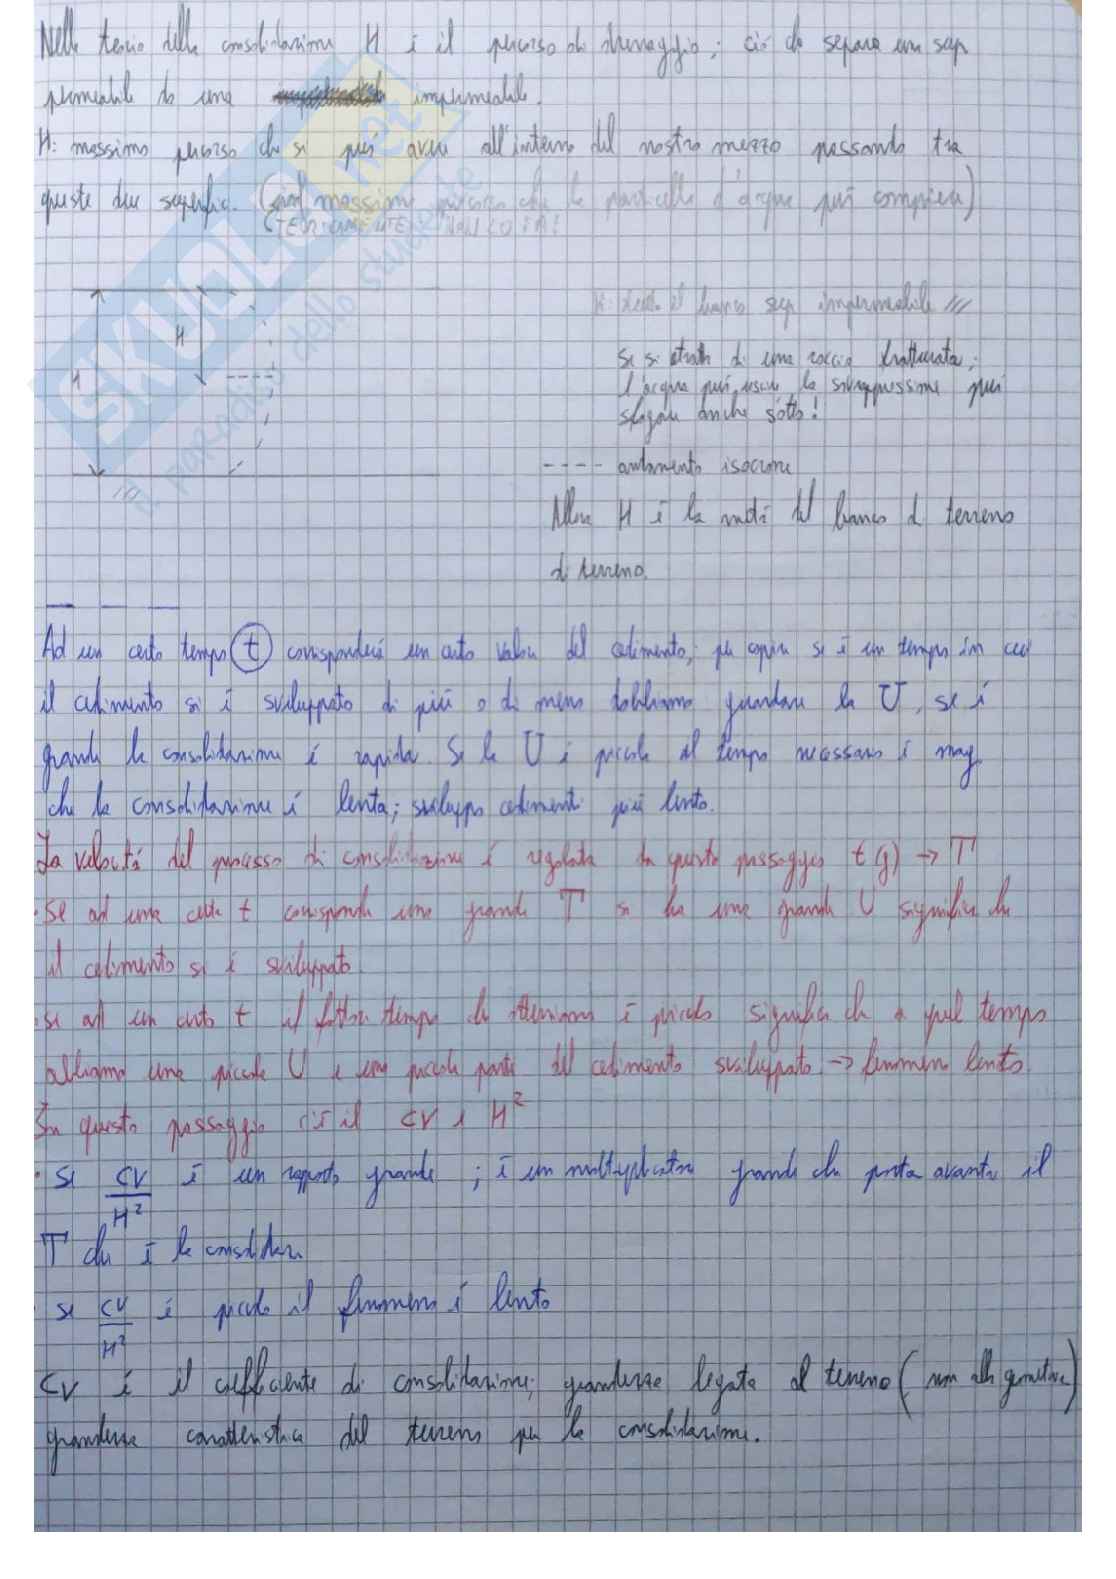 Nella teoria della consolidazione H è il percorso di drenaggio; ciò che separa una sup
permeabile da una impermeabile.
H: massimo percorso che si può avere all'interno del nostro mezzo passando tra
queste due superfici. (cioè massimo percorso che la particella d'acqua può compiere)
(TEORICAMENTE NON LO FA!
H
H: tutto il banco sup impermeabile ///
Se si tratta di una roccia fratturata;
l'acqua può uscire la sovrappressione può
sfogare anche sotto!
---- andamento isocrone
Allora H è la metà del banco di terreno
di terreno.
Ad un certo tempo t corrisponderà un certo valore del cedimento; per capire se è un tempo in cui
il cedimento si è sviluppato di più o di meno dobbiamo guardare la U, se è
grande la consolidazione è rapida. Se la U è piccola il tempo necessario è mag
che la consolidazione è lenta; sviluppo cedimenti più lento.
La velocità del processo di consolidazione è regolata da questo passaggio t (g) → T
· Se ad una certa t corrisponde una grande T si ha una grande U significa che
il cedimento si è sviluppato
· Se ad un certo t il fattore tempo che otteniamo è piccolo significa che a quel tempo
abbiamo una piccola U e una piccola parte del cedimento sviluppato → fenomeno lento.
In questo passaggio c'è il CV e H²
· Se CV/H² è un rapporto grande; è un moltiplicatore grande che porta avanti il
T che è la consolidaz.
· se CV/H² è piccolo il fenomeno è lento
CV è il coefficiente di consolidazione; grandezza legata al terreno (non alla geometria)
grandezza caratteristica del terreno per la consolidazione.
SKUOLA.net
il paradiso dello studente